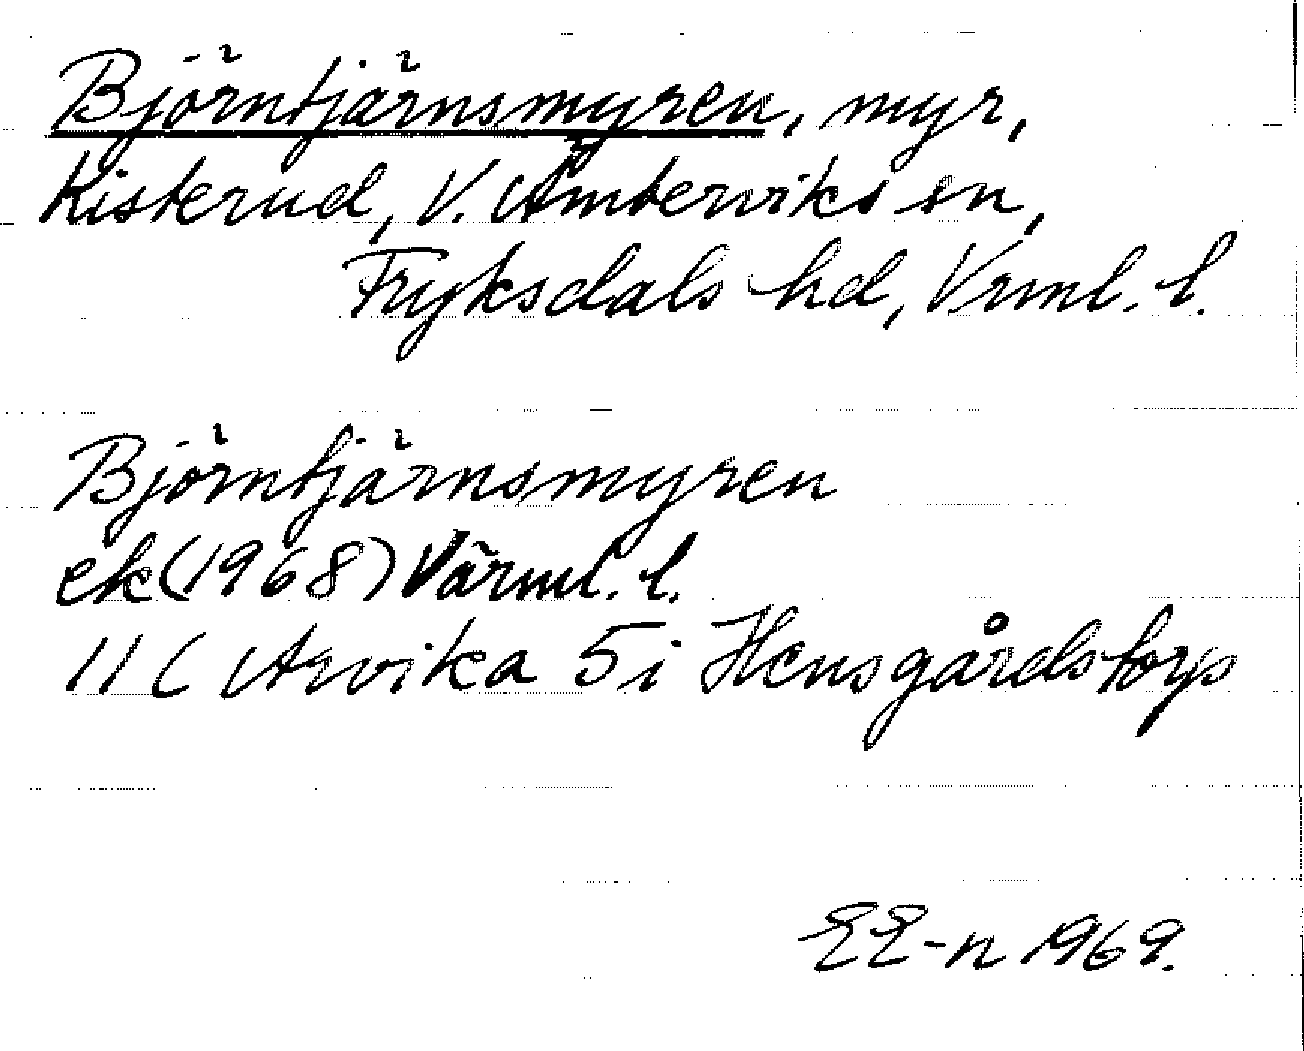 Björntjärnsmyren, myr,
Kisterud, V. Ämterviks sn,
Fryksdals hd, Vrml. l.
Björntjärnsmyren
ek (1968) Värml. l.
11 C Arvika 5i Hensgårdstorp
EE-n 1969.